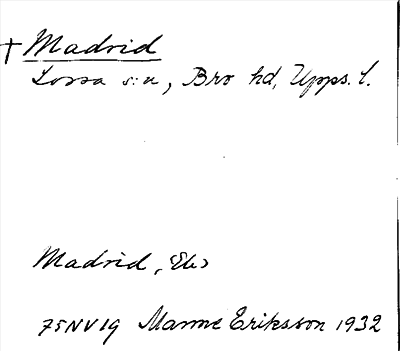 † Madrid
Lossa s:n, Bro hd, Upps. l.
Madrid, Ek.
75NV19 Manne Eriksson 1932